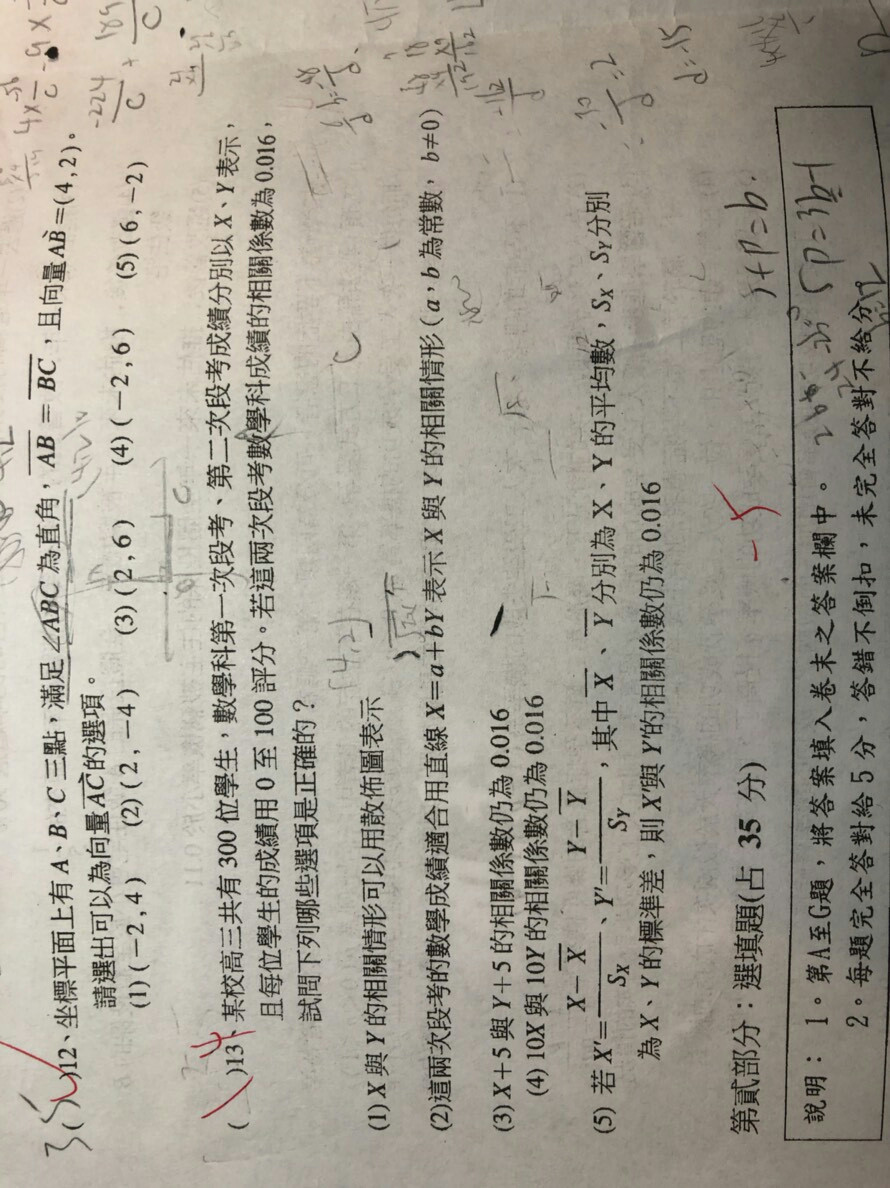 35( )12、坐標平面上有 A、B、C 三點，滿足 ∠ABC 為直角，AB = BC，且向量AB=(4,2)。
請選出可以為向量AC的選項。
(1) (−2,4) (2) (2,−4) (3) (2,6) (4) (−2,6) (5) (6,−2)
( )13、某校高三共有 300 位學生，數學科第一次段考、第二次段考成績分別以 X、Y 表示，
且每位學生的成績用 0 至 100 評分。若這兩次段考數學科成績的相關係數為 0.016，
試問下列哪些選項是正確的？
(1) X 與 Y 的相關情形可以用散佈圖表示
(2)這兩次段考的數學成績適合用直線 X=a+bY 表示 X 與 Y 的相關情形 (a，b 為常數，b≠0)
(3) X+5 與 Y+5 的相關係數仍為 0.016
(4) 10X 與 10Y 的相關係數仍為 0.016
(5) 若 X′= X−X / SX、Y′= Y−Y / SY，其中 X、Y 分別為 X、Y 的平均數，SX、SY分別
為 X、Y 的標準差，則 X′與 Y′的相關係數仍為 0.016
-5
1+P=b.
第貳部分：選填題(占 35 分)
5P=3b-1
說明：1。第A至G題，將答案填入卷末之答案欄中。
2。每題完全答對給5分，答錯不倒扣，未完全答對不給分
d=-15